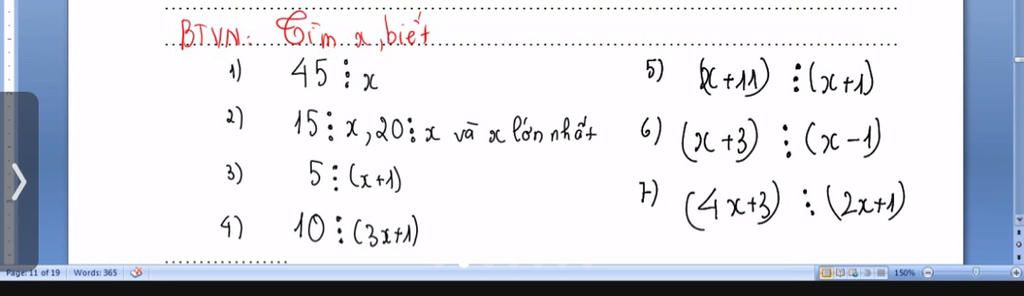 BTVN: Tìm x, biết
1) 45 ⋮ x
2) 15 ⋮ x, 20 ⋮ x và x lớn nhất
3) 5 ⋮ (x+1)
4) 10 ⋮ (3x+1)
5) (x+11) ⋮ (x+1)
6) (x+3) ⋮ (x-1)
7) (4x+3) ⋮ (2x+1)
Page: 11 of 19 Words: 365 150%